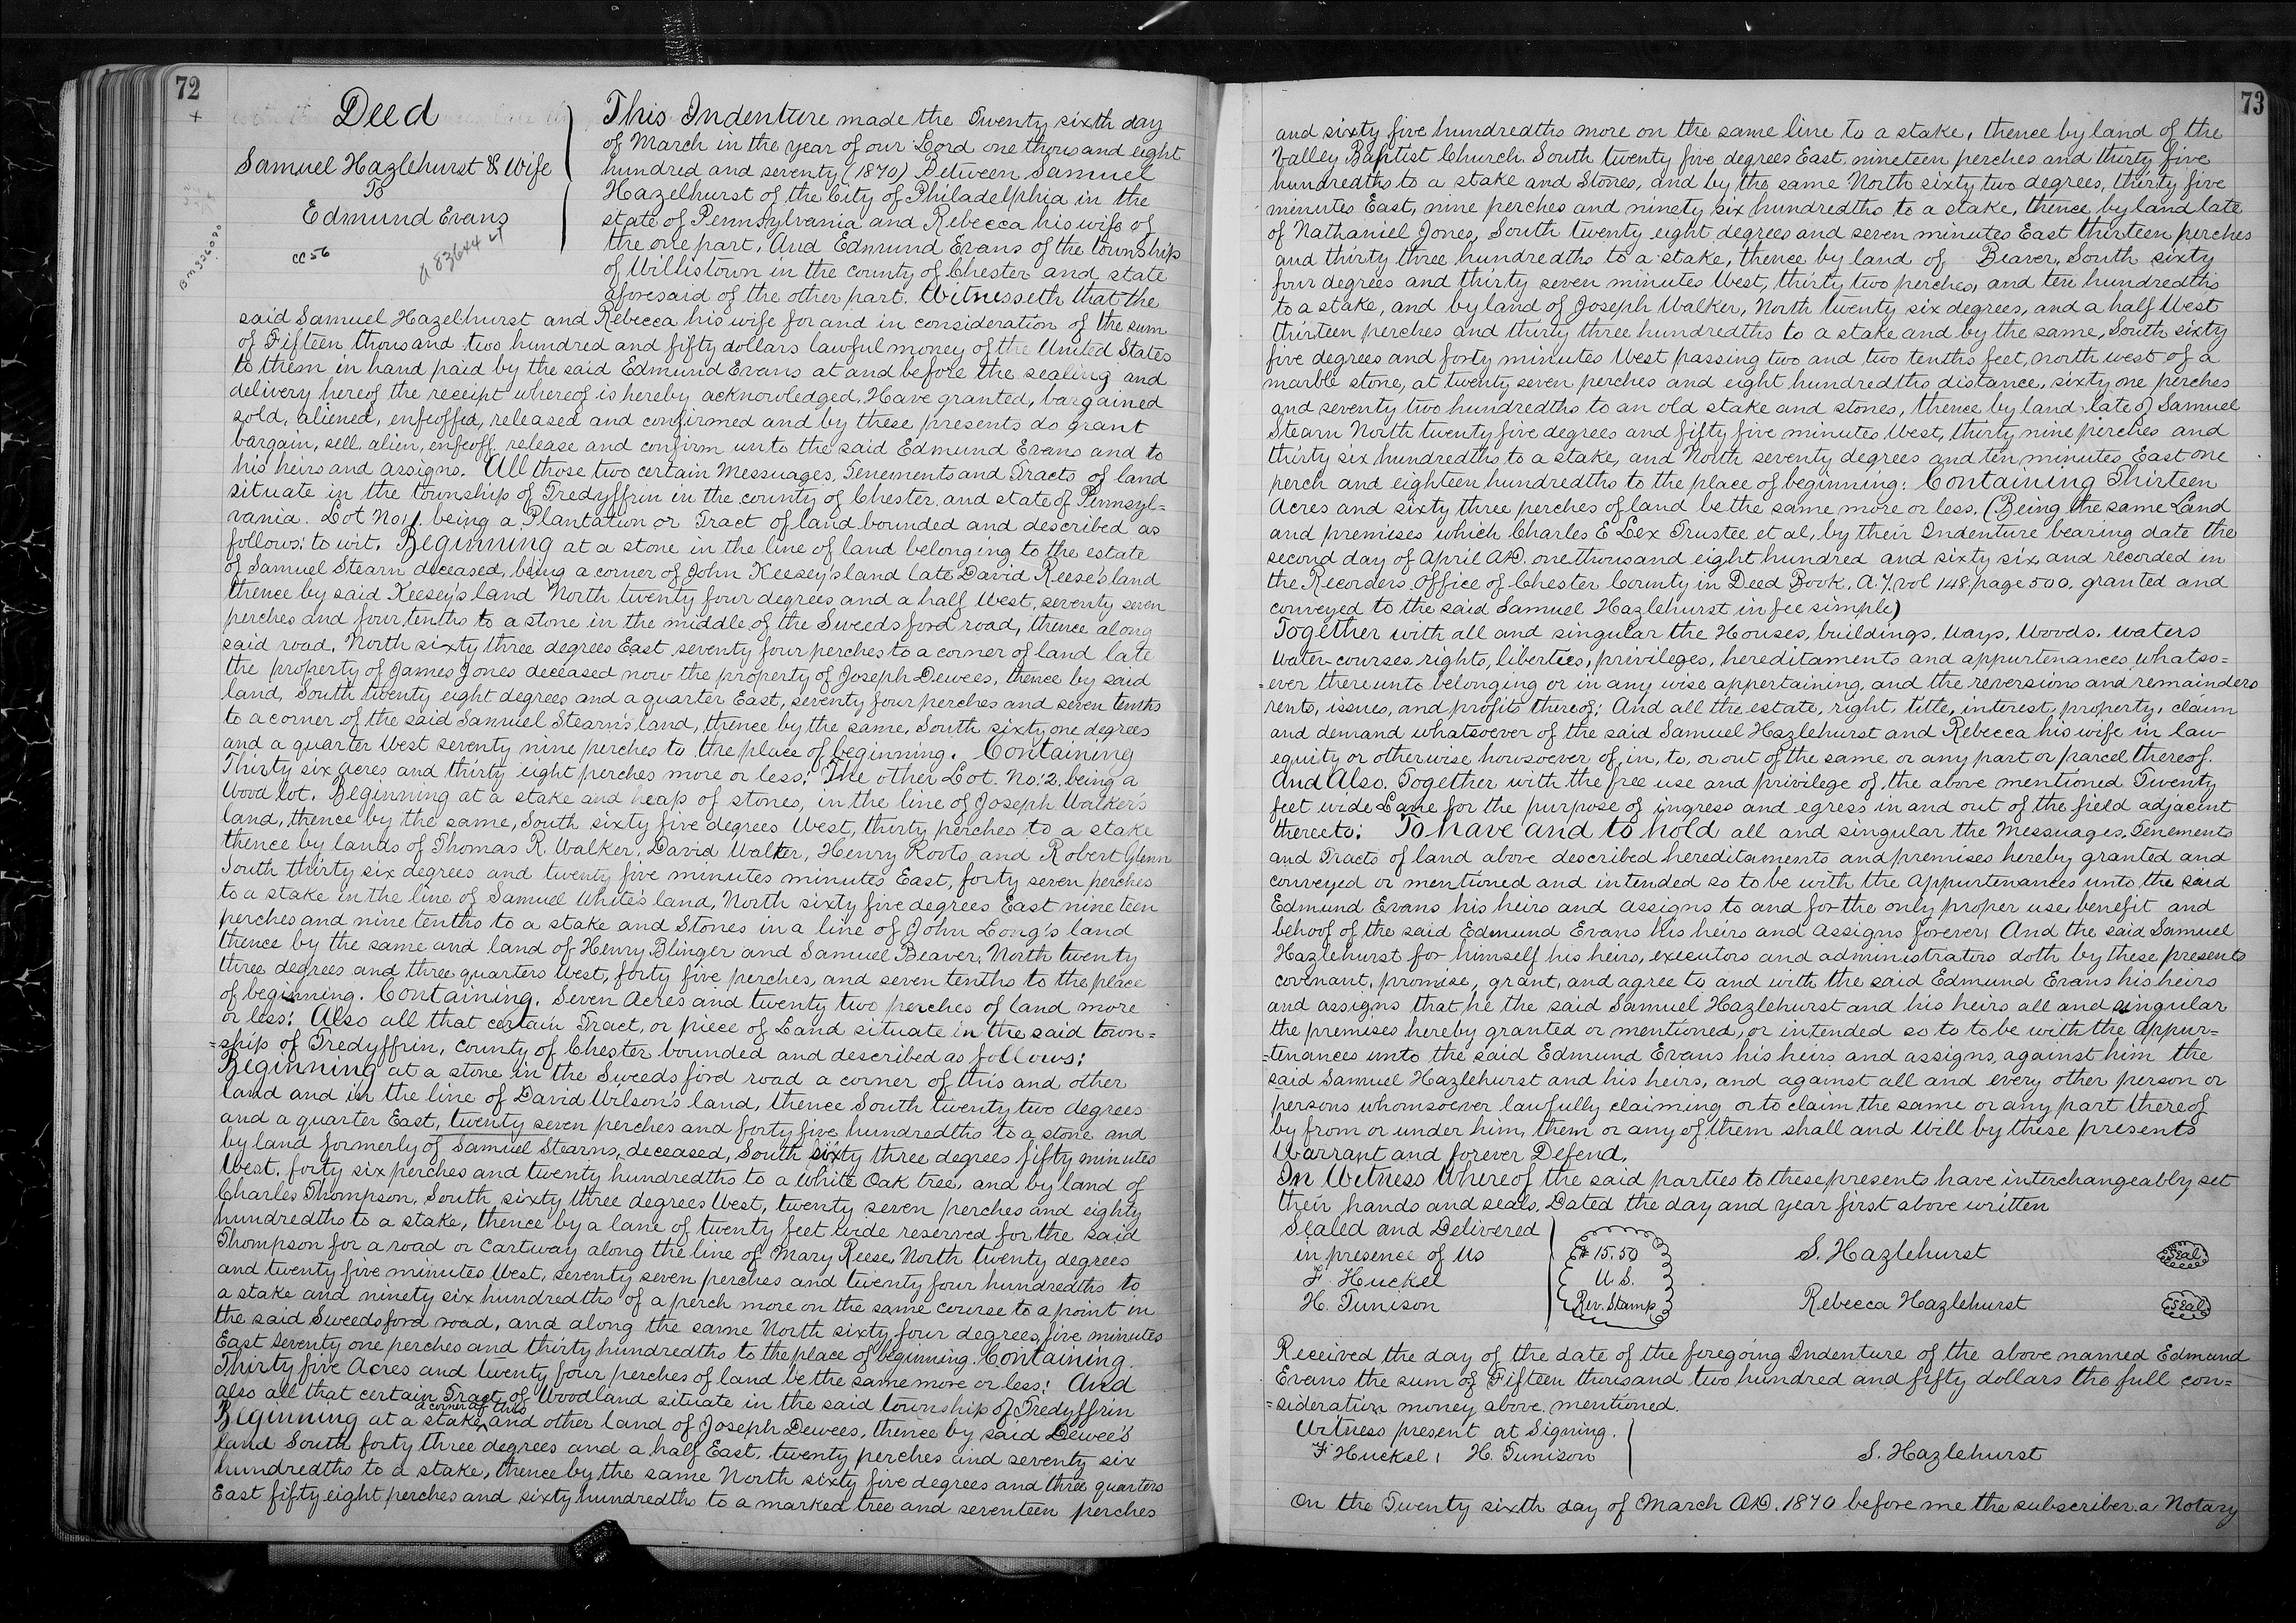 72
+
Deed
Samuel Hazlehurst & Wife
To
Edmund Evans
cc 56
This Indenture made the Twenty sixth day
of March in the year of our Lord one thousand eight
hundred and seventy (1870) Between Samuel
Hazelhurst of the City of Philadelphia in the
state of Pennsylvania and Rebecca his wife of
the one part, And Edmund Evans of the township
of Willistown in the county of Chester and state
aforesaid of the other part. Witnesseth that the
said Samuel Hazelhurst and Rebecca his wife for and in consideration of the sum
of Fifteen thousand two hundred and fifty dollars lawful money of the United States
to them in hand paid by the said Edmund Evans at and before the sealing and
delivery hereof the receipt whereof is hereby acknowledged, Have granted, bargained
sold, aliened, enfeoffed, released and confirmed and by these presents do grant
bargain, sell, alien, enfeoff, release and confirm unto the said Edmund Evans and to
his heirs and assigns. All those two certain Messuages, Tenements and Tracts of land
situate in the township of Tredyffrin in the county of Chester and state of Pennsyl=
vania. Lot No. 1. being a Plantation or Tract of land bounded and described as
follows: to wit. Beginning at a stone in the line of land belonging to the estate
of Samuel Stearn deceased, being a corner of John Keesey's land late David Reese's land
thence by said Keesey's land North twenty four degrees and a half West, seventy seven
perches and four tenths to a stone in the middle of the Sweedsford road, thence along
said road, North sixty three degrees East seventy four perches to a corner of land late
the property of James Jones deceased now the property of Joseph Dewees, thence by said
land, South twenty eight degrees and a quarter East, seventy four perches and seven tenths
to a corner of the said Samuel Stearn's land, thence by the same, South sixty one degrees
and a quarter West seventy nine perches to the place of beginning. Containing
Thirty six acres and thirty eight perches more or less: The other Lot. No: 2. being a
Wood lot. Beginning at a stake and heap of stones, in the line of Joseph Walker's
land, thence by the same, South sixty five degrees West, thirty perches to a stake
thence by lands of Thomas R. Walker, David Walker, Henry Roots, and Robert Glenn
South thirty six degrees and twenty five minutes minutes East, forty seven perches
to a stake in the line of Samuel White's land, North sixty five degrees East nine teen
perches and nine tenths to a stake and Stones in a line of John Long's land
thence by the same and land of Henry Blinger and Samuel Beaver, North twenty
three degrees and three quarters West, forty five perches, and seven tenths to the place
of beginning. Containing. Seven Acres and twenty two perches of land more
or less: Also all that certain Tract, or piece of Land situate in the said town=
=ship of Tredyffrin, County of Chester bounded and described as follows;
Beginning at a stone in the Sweedsford road a corner of this and other
land and in the line of David Wilson's land, thence South twenty two degrees
and a quarter East, twenty seven perches and forty five hundredths to a stone and
by land formerly of Samuel Stearns, deceased, South sixty three degrees fifty minutes
West, forty six perches and twenty hundredths to a White Oak tree, and by land of
Charles Thompson, South sixty three degrees West, twenty seven perches and eighty
hundredths to a stake, thence by a lane of twenty feet wide reserved for the said
Thompson for a road or Cartway along the line of Mary Reese, North twenty degrees
and twenty five minutes West, seventy seven perches and twenty four hundredths to
a stake and ninety six hundredths of a perch more on the same course to a point in
the said Sweedsford road, and along the same North sixty four degrees, five minutes
East Seventy one perches and thirty hundredths to the place of beginning. Containing.
Thirty five Acres and twenty four perches of land be the same more or less: And
also all that certain Tract of Woodland situate in the said township of Tredyffrin
a corner of this
Beginning at a stake and other land of Joseph Dewees, thence by said Dewee's
land South forty three degrees and a half East. twenty perches and seventy six
hundredths to a stake, thence by the same North sixty five degrees and three quarters
East fifty eight perches and sixty hundredths to a marked tree and seventeen perches
73
and sixty five hundredths more on the same line to a stake, thence by land of the
Valley Baptist Church South twenty five degrees East, nineteen perches and thirty five
hundredths to a stake and Stones, and by the same North sixty two degrees, thirty five
minutes East, nine perches and ninety six hundredths to a stake, thence by land late
of Nathaniel Jones, South twenty eight degrees and seven minutes East thirteen perches
and thirty three hundredths to a stake, thence by land of Beaver, South sixty
four degrees and thirty seven minutes West, thirty two perches, and ten hundredths
to a stake, and by land of Joseph Walker, North twenty six degrees, and a half West
thirteen perches and thirty three hundredths to a stake and by the same, South sixty
five degrees and forty minutes West passing two and two tenths feet, north west of a
marble stone, at twenty seven perches and eight hundredths distance, sixty one perches
and seventy two hundredths to an old stake and stones, thence by land late of Samuel
Stearn North twenty five degrees and fifty five minutes West, thirty nine perches and
thirty six hundredths to a stake, and North seventy degrees and ten minutes East one
perch and eighteen hundredths to the place of beginning: Containing Thirteen
Acres and sixty three perches of land be the same more or less. (Being the same Land
and premises which Charles E Lex Trustee et al, by their Indenture bearing date the
second day of April A.D. one thousand eight hundred and sixty six, and recorded in
the Recorders Office of Chester County in Deed Book, A. 7. vol 148. page 500. granted and
conveyed to the said Samuel Hazlehurst in fee simple)
Together with all and singular the Houses, buildings, ways, woods, waters
water-courses, rights, liberties, privileges, hereditaments and appurtenances whatso=
=ever thereunto belonging or in any wise appertaining, and the reversions and remainders
rents, issues, and profits thereof; And all the estate, right, title, interest, property, claim
and demand whatsoever of the said Samuel Hazlehurst and Rebecca his wife in law
equity or otherwise howsoever of, in, to, or out of the same or any part or parcel thereof.
And Also. Together with the free use and privilege of the above mentioned Twenty
feet wide Lane for the purpose of ingress and egress in and out of the field adjacent
thereto. To have and to hold all and singular the Messuages, Tenements
and Tracts of land above described hereditaments and premises hereby granted and
conveyed or mentioned and intended so to be with the Appurtenances unto the said
Edmund Evans his heirs and assigns to and for the only proper use, benefit and
behoof of the said Edmund Evans his heirs and assigns forever. And the said Samuel
Hazlehurst for himself his heirs, executors and administrators doth by these presents
covenant, promise, grant, and agree to and with the said Edmund Evans his heirs
and assigns that he the said Samuel Hazlehurst and his heirs all and singular
the premises hereby granted or mentioned, or intended so to to be with the appur=
=tenances unto the said Edmund Evans his heirs and assigns, against him the
said Samuel Hazlehurst and his heirs, and against all and every other person or
persons whomsoever lawfully claiming or to claim the same or any part thereof
by from or under him, them or any of them shall and Will by these presents
Warrant and forever Defend.
In Witness Whereof the said parties to these presents have interchangeably set
their hands and seals, Dated the day and year first above written
Sealed and Delivered
in presence of us
F. Huckel
H. Tunison
$ 15.50
U. S.
Rev. Stamp
S. Hazlehurst Seal
Rebecca Hazlehurst Seal
Received the day of the date of the foregoing Indenture of the above named Edmund
Evans the sum of Fifteen thousand two hundred and fifty dollars the full con=
=sideration money above mentioned.
Witness present at Signing.
F Huckel, H. Tunison
S. Hazlehurst
On the Twenty sixth day of March A.D. 1870 before me the subscriber a Notary